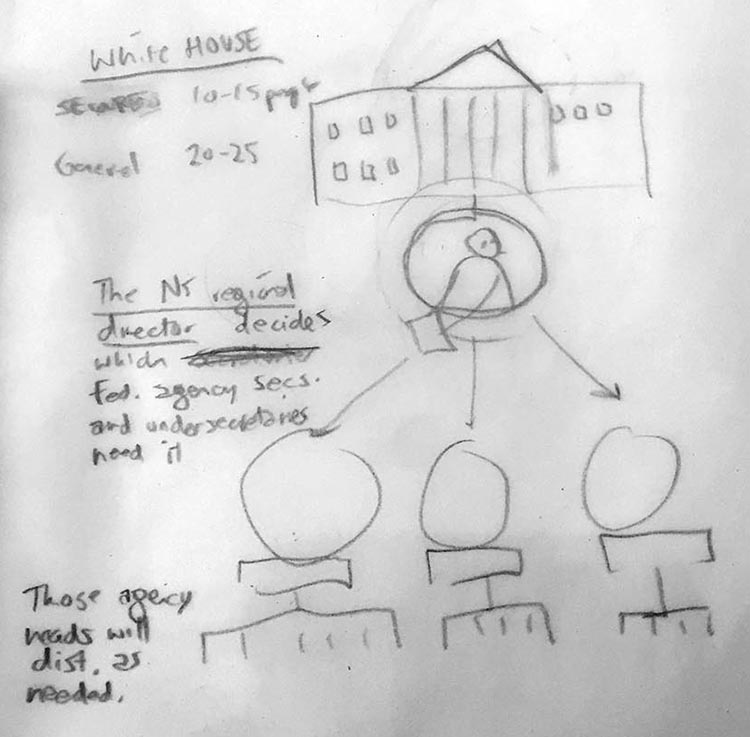 White HOUSE
10-15 pages
General 20-25
The NS regional
director decides
which
Fed. agency secs.
and undersecretaries
need it
Those agency
heads will
dist. as
needed.